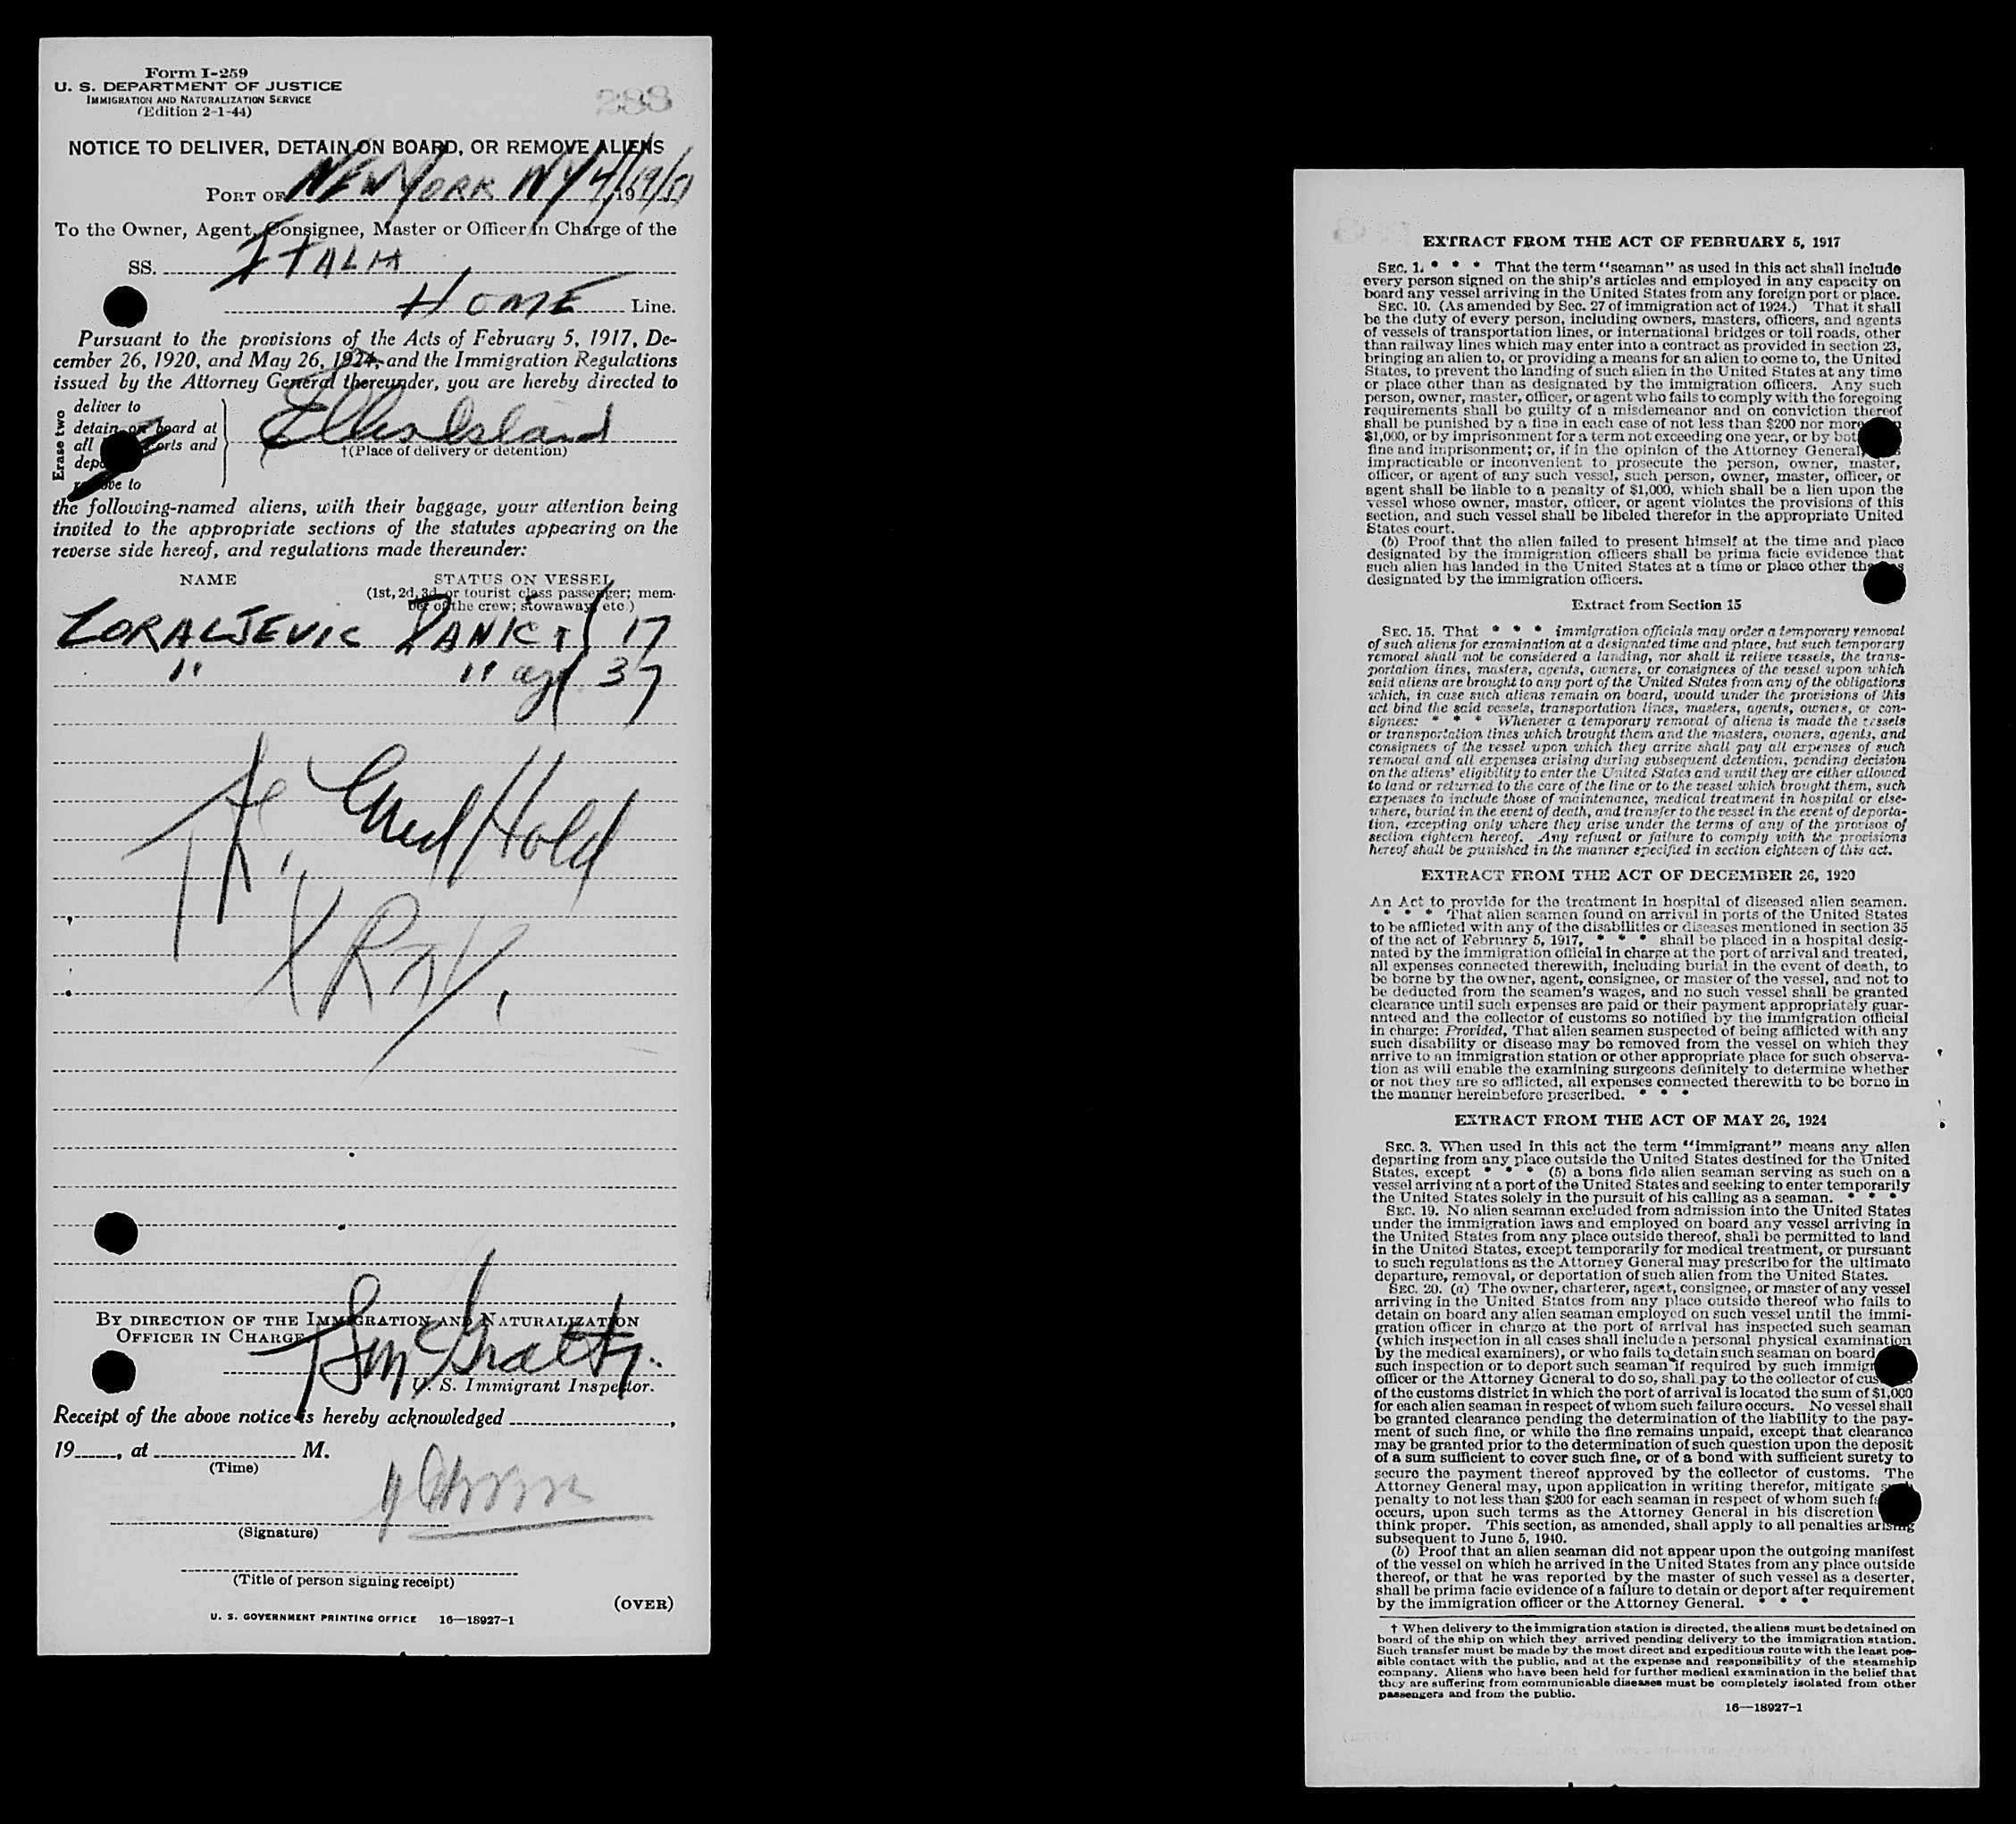 Form I-259
U. S. DEPARTMENT OF JUSTICE
IMMIGRATION AND NATURALIZATION SERVICE
(Edition 2-1-44)
288
NOTICE TO DELIVER, DETAIN ON BOARD, OR REMOVE ALIENS
PORT OF NEW YORK NY 4/19/51, 19
To the Owner, Agent, Consignee, Master or Officer in Charge of the
SS. ITALIA
HOME Line.
Pursuant to the provisions of the Acts of February 5, 1917, De-
cember 26, 1920, and May 26, 1924, and the Immigration Regulations
issued by the Attorney General thereunder, you are hereby directed to
Erase two
deliver to
detain on board at
all ports and
remove to
Ellis Island
†(Place of delivery or detention)
the following-named aliens, with their baggage, your attention being
invited to the appropriate sections of the statutes appearing on the
reverse side hereof, and regulations made thereunder:
NAME STATUS ON VESSEL
(1st, 2d, 3d, or tourist class passenger; mem-
ber of the crew; stowaway, etc.)
17
" " age 37
Med Hold
X Ray.
BY DIRECTION OF THE IMMIGRATION AND NATURALIZATION
OFFICER IN CHARGE
U. S. Immigrant Inspector.
Receipt of the above notice is hereby acknowledged ,
19 , at M.
(Time)
(Signature)
(Title of person signing receipt)
(OVER)
U. S. GOVERNMENT PRINTING OFFICE 16—18927-1
EXTRACT FROM THE ACT OF FEBRUARY 5, 1917
SEC. 1. * * * That the term "seaman" as used in this act shall include
every person signed on the ship's articles and employed in any capacity on
board any vessel arriving in the United States from any foreign port or place.
SEC. 10. (As amended by Sec. 27 of immigration act of 1924.) That it shall
be the duty of every person, including owners, masters, officers, and agents
of vessels of transportation lines, or international bridges or toll roads, other
than railway lines which may enter into a contract as provided in section 23,
bringing an alien to, or providing a means for an alien to come to, the United
States, to prevent the landing of such alien in the United States at any time
or place other than as designated by the immigration officers. Any such
person, owner, master, officer, or agent who fails to comply with the foregoing
requirements shall be guilty of a misdemeanor and on conviction thereof
shall be punished by a fine in each case of not less than $200 nor more
$1,000, or by imprisonment for a term not exceeding one year, or by both
fine and imprisonment; or, if in the opinion of the Attorney General,
impracticable or inconvenient to prosecute the person, owner, master,
officer, or agent of any such vessel, such person, owner, master, officer, or
agent shall be liable to a penalty of $1,000, which shall be a lien upon the
vessel whose owner, master, officer, or agent violates the provisions of this
section, and such vessel shall be libeled therefor in the appropriate United
States court.
(b) Proof that the alien failed to present himself at the time and place
designated by the immigration officers shall be prima facie evidence that
such alien has landed in the United States at a time or place other than as
designated by the immigration officers.
Extract from Section 15
SEC. 15. That * * * immigration officials may order a temporary removal
of such aliens for examination at a designated time and place, but such temporary
removal shall not be considered a landing, nor shall it relieve vessels, the trans-
portation lines, masters, agents, owners, or consignees of the vessel upon which
said aliens are brought to any port of the United States from any of the obligations
which, in case such aliens remain on board, would under the provisions of this
act bind the said vessels, transportation lines, masters, agents, owners, or con-
signees: * * * Whenever a temporary removal of aliens is made the vessels
or transportation lines which brought them and the masters, owners, agents, and
consignees of the vessel upon which they arrive shall pay all expenses of such
removal and all expenses arising during subsequent detention, pending decision
on the aliens' eligibility to enter the United States and until they are either allowed
to land or returned to the care of the line or to the vessel which brought them, such
expenses to include those of maintenance, medical treatment in hospital or else-
where, burial in the event of death, and transfer to the vessel in the event of deporta-
tion, excepting only where they arise under the terms of any of the provisos of
section eighteen hereof. Any refusal or failure to comply with the provisions
hereof shall be punished in the manner specified in section eighteen of this act.
EXTRACT FROM THE ACT OF DECEMBER 26, 1920
An Act to provide for the treatment in hospital of diseased alien seamen.
* * * That alien seamen found on arrival in ports of the United States
to be afflicted with any of the disabilities or diseases mentioned in section 35
of the act of February 5, 1917, * * * shall be placed in a hospital desig-
nated by the immigration official in charge at the port of arrival and treated,
all expenses connected therewith, including burial in the event of death, to
be borne by the owner, agent, consignee, or master of the vessel, and not to
be deducted from the seamen's wages, and no such vessel shall be granted
clearance until such expenses are paid or their payment appropriately guar-
anteed and the collector of customs so notified by the immigration official
in charge: Provided, That alien seamen suspected of being afflicted with any
such disability or disease may be removed from the vessel on which they
arrive to an immigration station or other appropriate place for such observa-
tion as will enable the examining surgeons definitely to determine whether
or not they are so afflicted, all expenses connected therewith to be borne in
the manner hereinbefore prescribed. * * *
EXTRACT FROM THE ACT OF MAY 26, 1924
SEC. 3. When used in this act the term "immigrant" means any alien
departing from any place outside the United States destined for the United
States, except * * * (5) a bona fide alien seaman serving as such on a
vessel arriving at a port of the United States and seeking to enter temporarily
the United States solely in the pursuit of his calling as a seaman. * * *
SEC. 19. No alien seaman excluded from admission into the United States
under the immigration laws and employed on board any vessel arriving in
the United States from any place outside thereof, shall be permitted to land
in the United States, except temporarily for medical treatment, or pursuant
to such regulations as the Attorney General may prescribe for the ultimate
departure, removal, or deportation of such alien from the United States.
SEC. 20. (a) The owner, charterer, agent, consignee, or master of any vessel
arriving in the United States from any place outside thereof who fails to
detain on board any alien seaman employed on such vessel until the immi-
gration officer in charge at the port of arrival has inspected such seaman
(which inspection in all cases shall include a personal physical examination
by the medical examiners), or who fails to detain such seaman on board
such inspection or to deport such seaman if required by such immigr
officer or the Attorney General to do so, shall pay to the collector of customs
of the customs district in which the port of arrival is located the sum of $1,000
for each alien seaman in respect of whom such failure occurs. No vessel shall
be granted clearance pending the determination of the liability to the pay-
ment of such fine, or while the fine remains unpaid, except that clearance
may be granted prior to the determination of such question upon the deposit
of a sum sufficient to cover such fine, or of a bond with sufficient surety to
secure the payment thereof approved by the collector of customs. The
Attorney General may, upon application in writing therefor, mitigate such
penalty to not less than $200 for each seaman in respect of whom such fa
occurs, upon such terms as the Attorney General in his discretion
think proper. This section, as amended, shall apply to all penalties arising
subsequent to June 5, 1940.
(b) Proof that an alien seaman did not appear upon the outgoing manifest
of the vessel on which he arrived in the United States from any place outside
thereof, or that he was reported by the master of such vessel as a deserter,
shall be prima facie evidence of a failure to detain or deport after requirement
by the immigration officer or the Attorney General. * * *
† When delivery to the immigration station is directed, the aliens must be detained on
board of the ship on which they arrived pending delivery to the immigration station.
Such transfer must be made by the most direct and expeditious route with the least pos-
sible contact with the public, and at the expense and responsibility of the steamship
company. Aliens who have been held for further medical examination in the belief that
they are suffering from communicable diseases must be completely isolated from other
passengers and from the public.
16—18927-1